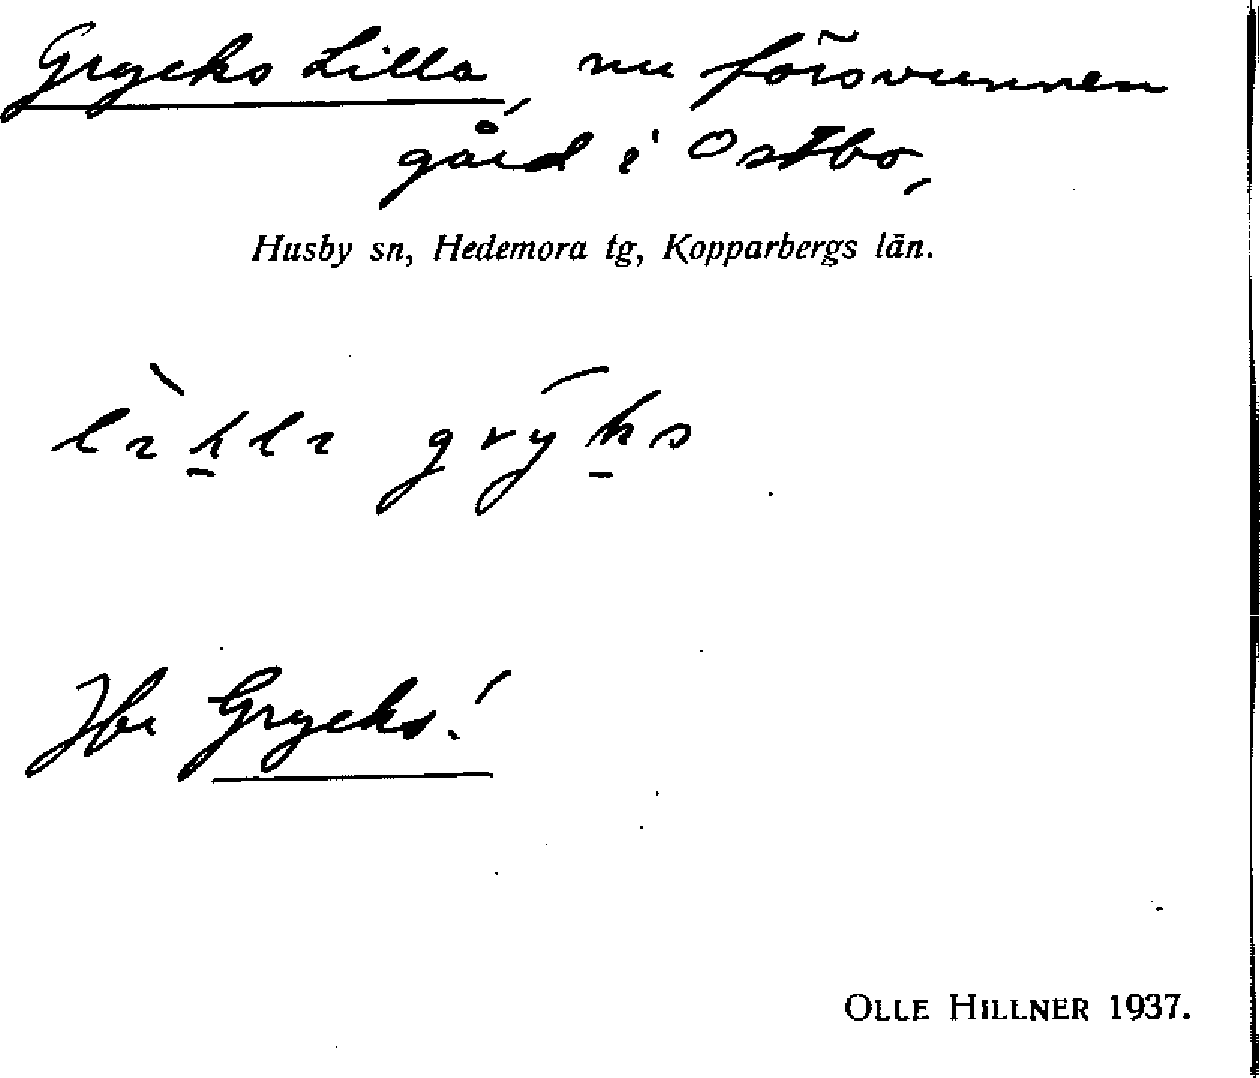 Grycks Lilla, nu försvunnen
gård i Ostbo,
Husby sn, Hedemora tg, Kopparbergs län.
grýks
Jfr Grycks!
OLLE HILLNER 1937.